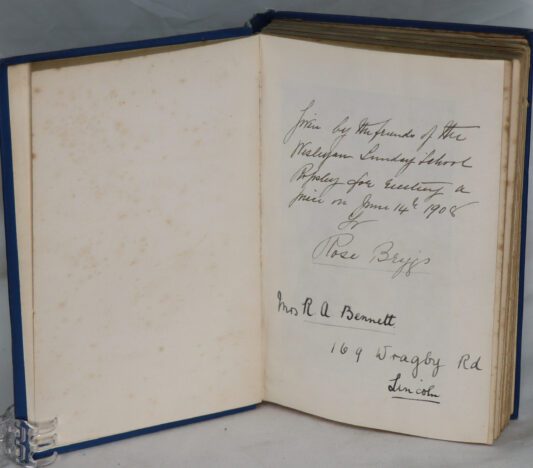 Given by the friends of the
Wesleyan Sunday School
Ropsley for reciting a
piece on June 14th 1908
to
Rose Briggs
Mrs R A Bennett
169 Wragby Rd
Lincoln